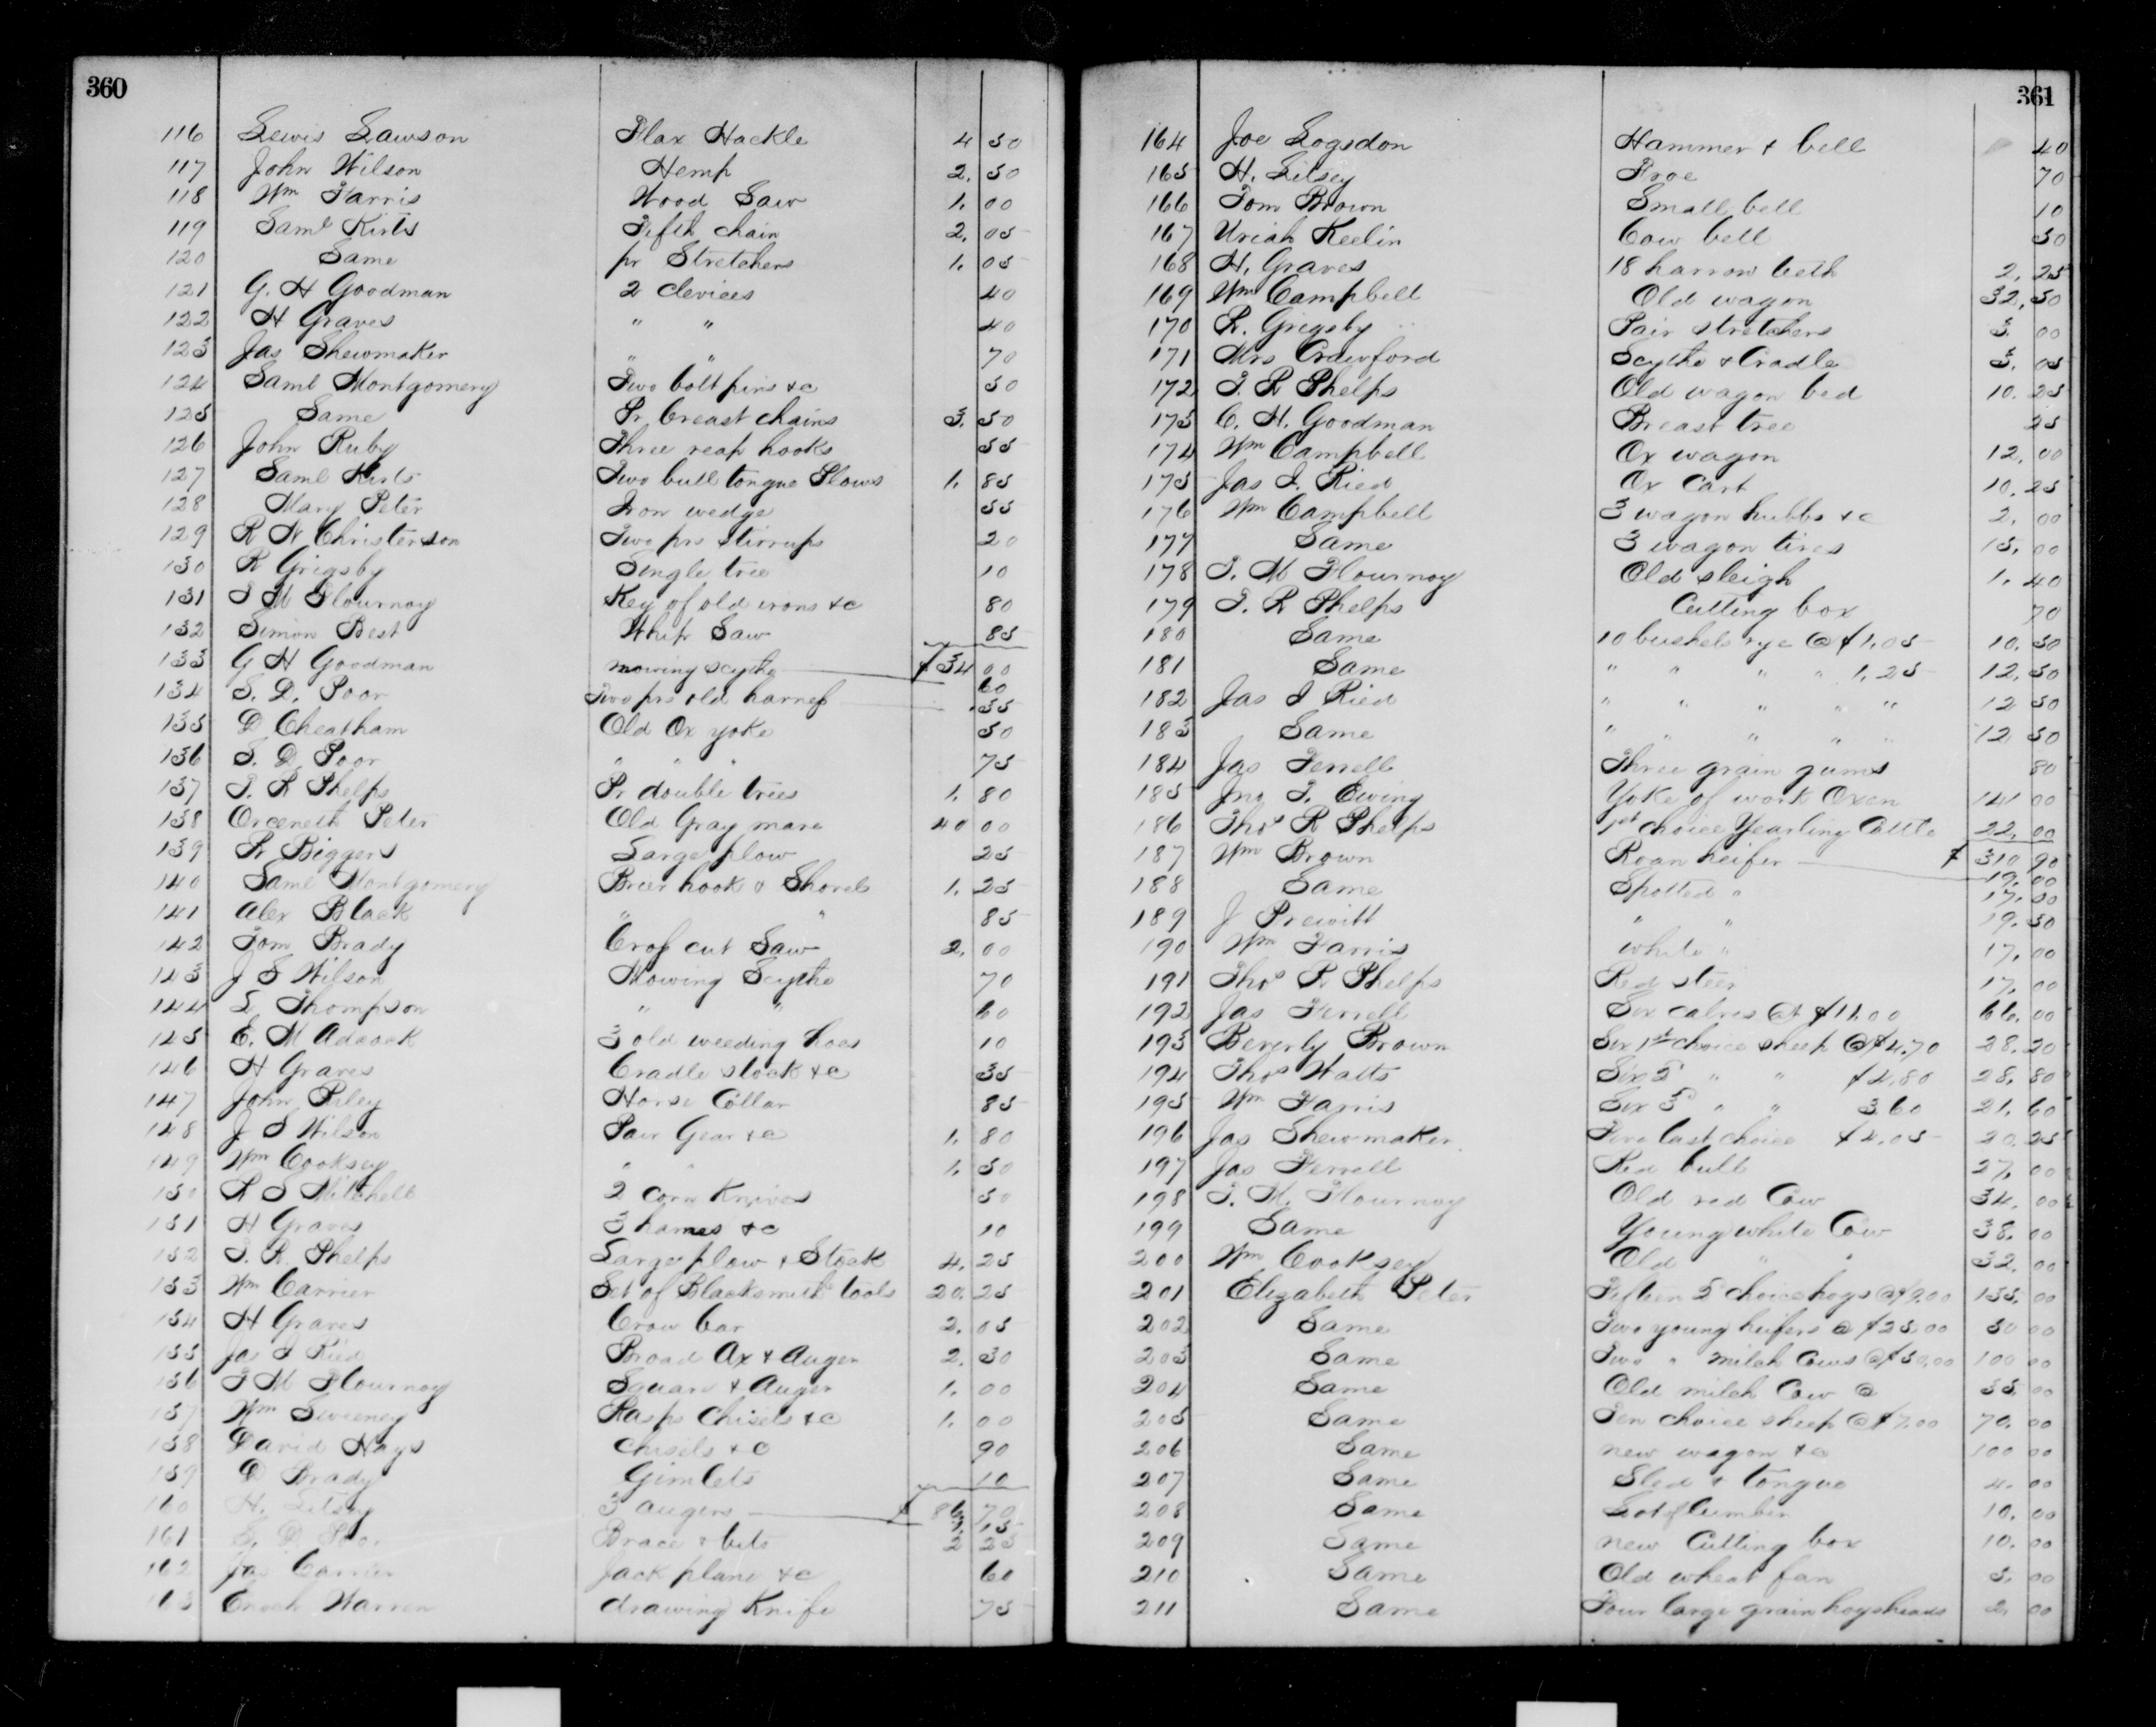 360
116 Lewis Lawson Flax Hackle 4 50
117 John Wilson Hemp 2. 50
118 Wm Farris Wood Saw 1. 00
119 Saml Kirts Fifth chain 2. 05
120 Same pr Stretchers 1. 05
121 G. H Goodman 2 clevices 40
122 H Graves " " 40
123 Jas Shewmaker " " 70
124 Saml Montgomery Two bolt pins &c 50
125 Same Pr breast chains 3. 50
126 John Ruby Three reap hooks 55
127 Saml Kirts Two bull tongue Plows 1. 85
128 Mary Peter Iron wedge 55
129 R N Christerson Two prs stirrups 20
130 R Grigsby Single tree 10
131 T M Flournoy Key of old irons &c 80
132 Simon Best Whip Saw 85
133 G H Goodman mowing scythe $34 00
60
134 S. D. Poor Two prs old harness .55
135 D Cheatham Old Ox yoke 50
136 S. D. Poor " " " 75
137 T. R Phelps Pr double trees 1. 80
138 Orceneth Peter Old Gray mare 40 00
139 R Biggers Large plow 25
140 Saml Montgomery Brier hook & Shovel 1. 25
141 Alex Black " " 85
142 Tom Brady Cross cut Saw 2. 00
143 J S Wilson Mowing Scythe 70
144 L Thompson " " 60
145 E. M Adcock 3 old weeding hoes 10
146 H Graves Cradle stock &c 35
147 John Riley Horse Collar 85
148 J S Wilson Pair Gear &c 1. 80
149 Wm Cooksey " " 1. 50
150 R S Mitchell 2 Corn Knives 50
151 H Graves 3 hames &c 10
152 T. R. Phelps Large plow & Stock 4. 25
153 Wm Carrier Set of Blacksmiths tools 20. 25
154 H Graves Crow bar 2. 05
155 Jas I Ried Broad Ax & Auger 2. 30
156 T M Flournoy Square & Auger 1. 00
157 Wm Sweeney Rasps Chisels &c 1. 00
158 David Hays Chisels &c 90
159 D Brady Gimlets 10
160 H. Litsey 3 augers $ 86 70
161 S. D. Poor Brace & bits 2 25
162 Jas Carrier Jack plane &c 60
163 Enoch Warren drawing Knife 75
361
164 Joe Logsdon Hammer & bell 40
165 H. Litsey Froe 70
166 Tom Brown Small bell 10
167 Uriah Keelin Cow bell 50
168 H. Graves 18 harrow teeth 2. 25
169 Wm Campbell Old wagon 32. 50
170 R. Grigsby Pair stretchers 3. 00
171 Mrs Crawford Scythe & Cradle 3. 05
172 T. R Phelps Old wagon bed 10. 25
173 C. H. Goodman Breast tree 25
174 Wm Campbell Ox wagon 12. 00
175 Jas I. Ried Ox Cart 10. 25
176 Wm Campbell 3 wagon hubbs &c 2. 00
177 Same 3 wagon tires 15. 00
178 T. M Flournoy Old sleigh 1. 40
179 T. R Phelps Cutting box 70
180 Same 10 bushels rye @ $1.05 10. 50
181 Same " " " " 1.25 12. 50
182 Jas I Ried " " " " " 12 50
183 Same " " " " " 12 50
184 Jas Ferrell Three grain gums 80
185 Jno T. Ewing Yoke of work Oxen 141 00
186 Thos R Phelps 1st choice Yearling Cattle 22. 00
187 Wm Brown Roan heifer $ 310 90
19. 00
188 Same Spotted " 17. 50
189 J Prewitt " " 19. 50
190 Wm Farris white " 17. 00
191 Thos R Phelps Red steer 17. 00
192 Jas Ferrell Six calves @ $11.00 66. 00
193 Beverly Brown Six 1st choice sheep @ $4.70 28. 20
194 Thos Watts Six 2d " " $4.80 28. 80
195 Wm Farris Six 3d " " 3.60 21. 60
196 Jas Shewmaker Five last choice $4.05 20. 25
197 Jas Ferrell Red bull 27. 00
198 T. M. Flournoy Old red Cow 34. 00
199 Same Young white Cow 38. 00
200 Wm Cooksey Old " " 32. 00
201 Elizabeth Peter Fifteen 2d choice hogs @ $9.00 135. 00
202 Same Two young heifers @ $25.00 50 00
203 Same Two " milch Cows @ $50.00 100 00
204 Same Old milch Cow @ 35 00
205 Same Ten choice sheep @ $7.00 70. 00
206 Same new wagon &c 100 00
207 Same Sled & tongue 4. 00
208 Same Lot of lumber 10. 00
209 Same new Cutting box 10. 00
210 Same Old wheat fan 5. 00
211 Same Four large grain hogsheads 2. 00